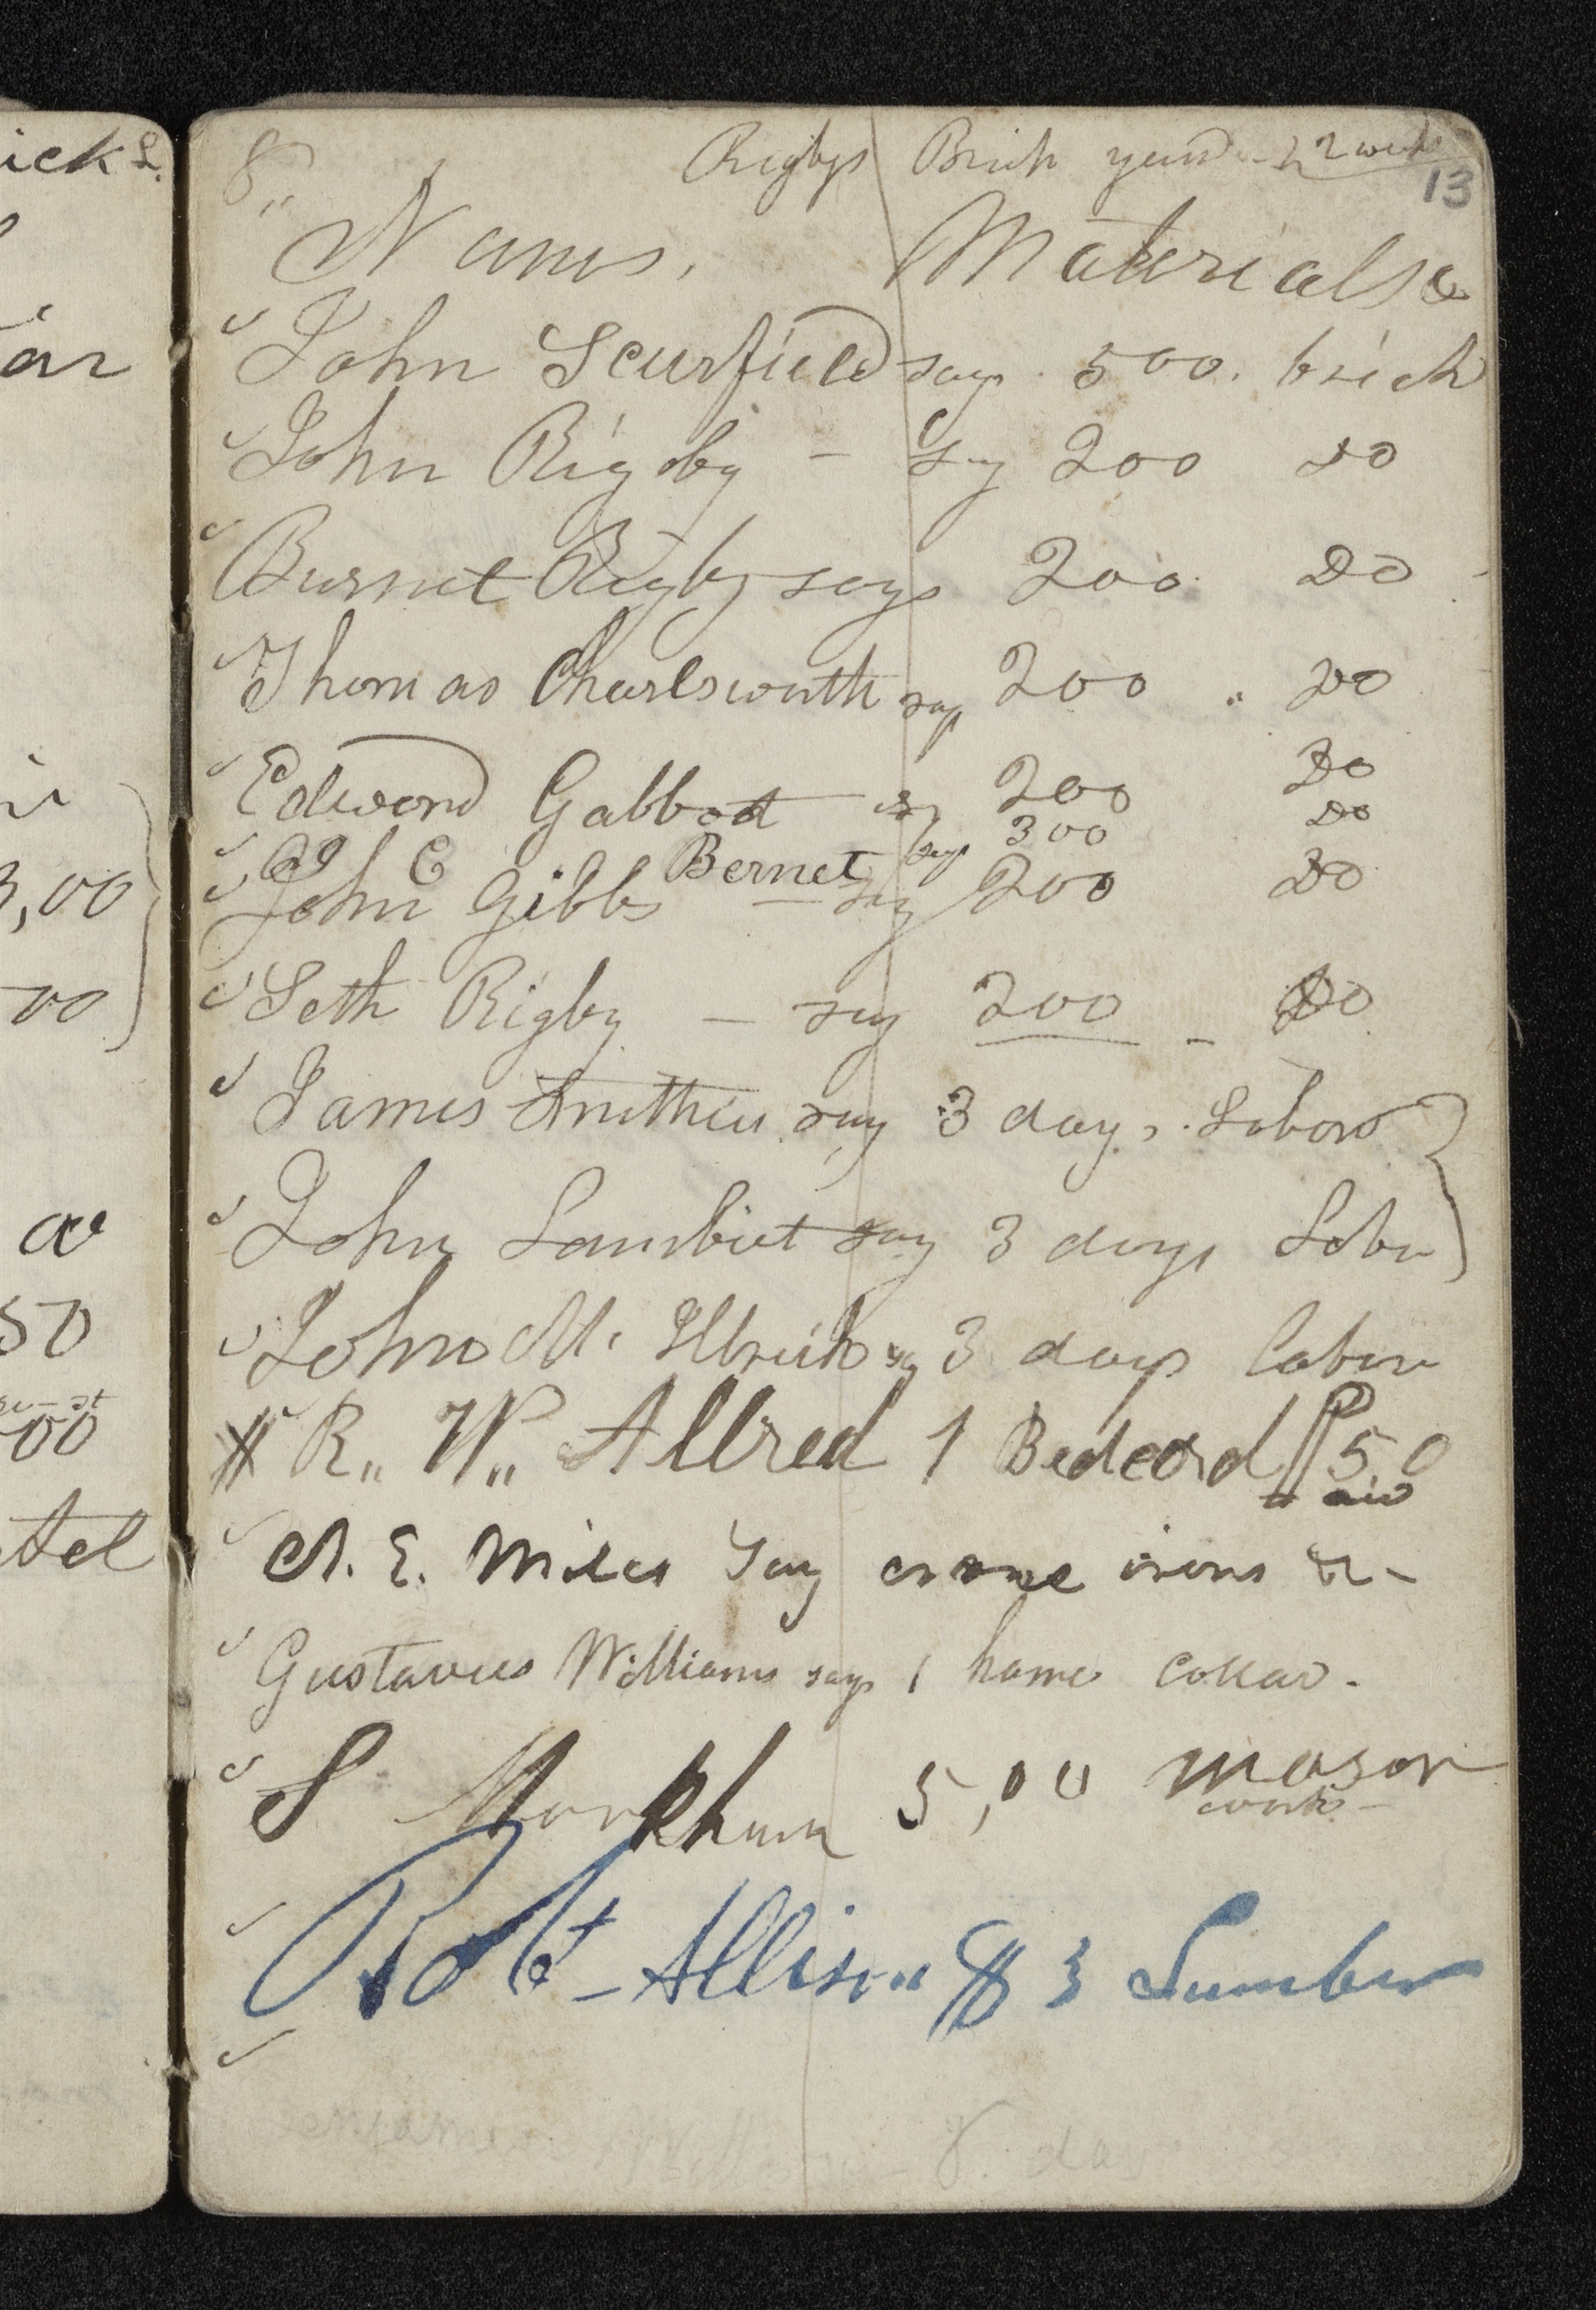 ick L.
8,, Rigbys Brick yard - 2 weeks
13
Names, Materials
ar
John Scurfield says 500. brick
John Rigby - say 200 Do
Burnet Rigby says 200 Do
Thomas Charlsworth says 200 " Do
Edward Gabbot say 200 Do
C Bernet says 300 Do
3,00
John Gibbs - say 200 Do
00
Seth Rigby - say 200 - Do
James say 3 days. Labor
John Lambert say 3 days Labor
50
John M. say 3 days labor
00
R,, W,, Allred 1 Bedcord Paid 50
A. E. Miles say crane irons &-
Gustavus Williams says 1 hame collar.
S Markham 5,00 mason
work -
Robt - Allison $ 3 Lumber